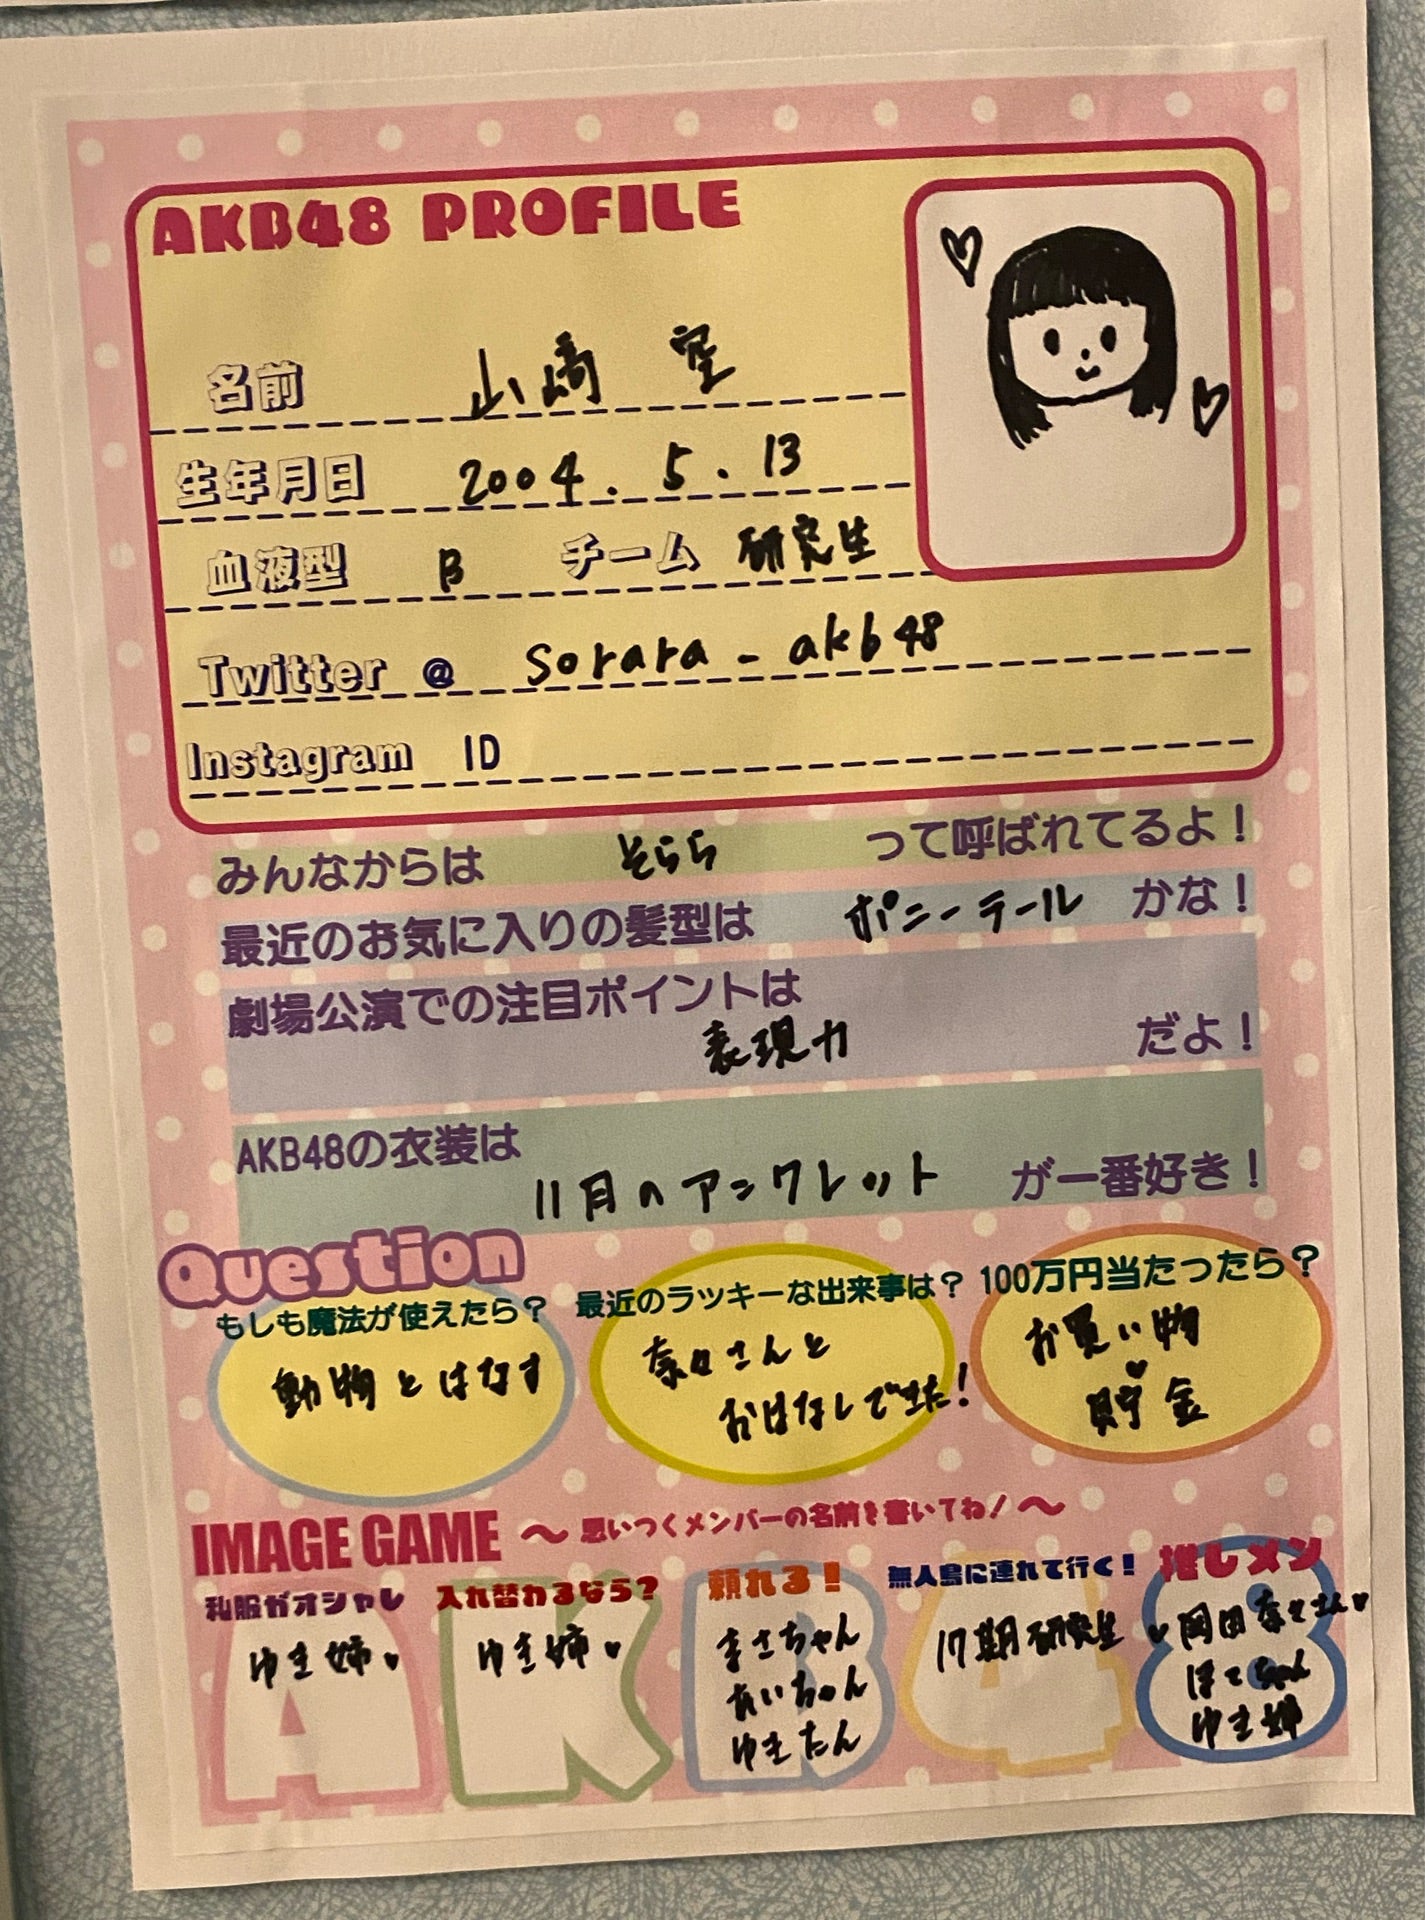 AKB48 PROFILE
名前 山﨑 空
生年月日 2004. 5. 13
血液型 B チーム 研究生
Twitter @ sorara_akb48
Instagram ID
みんなからは そらら って呼ばれてるよ！
最近のお気に入りの髪型は ポニーテール かな！
劇場公演での注目ポイントは
表現力 だよ！
AKB48の衣装は
11月のアンクレット が一番好き！
Question
もしも魔法が使えたら？
動物とはなす
最近のラッキーな出来事は？
奈々さんと
おはなしできた！
100万円当たったら？
お買い物
♥
貯金
IMAGE GAME 〜思いつくメンバーの名前を書いてね！〜
私服がオシャレ
ゆき姉♥
入れ替わるなら？
ゆき姉♥
頼れる！
まさちゃん
あいちゃん
ゆきたん
無人島に連れて行く！
17期研究生
推しメン
♥岡田奈々さん♥
ほてちゃん
ゆき姉
AKB48